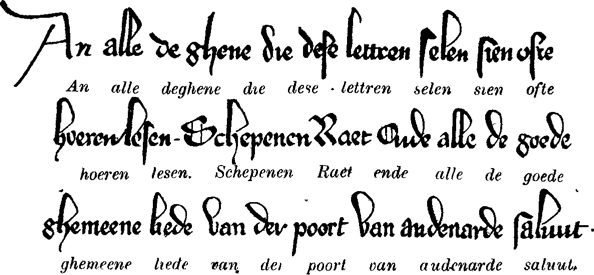 An alle de ghene die dese lettren selen sien ofte
An alle deghene die dese lettren selen sien ofte
hoeren lesen. Schepenen Raet Ende alle de goede
hoeren lesen. Schepenen Raet ende alle de goede
ghemeene liede van der poort van audenarde saluut.
ghemeene liede van der poort van audenarde saluut.